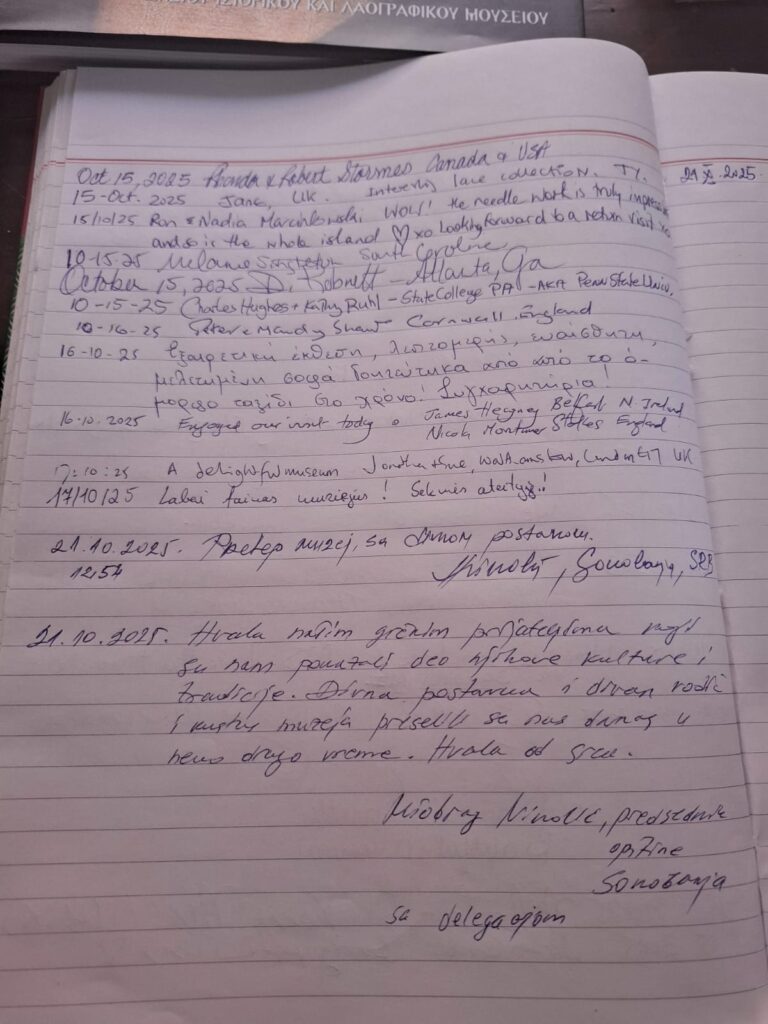 ΙΣΤΟΡΙΚΟΥ ΚΑΙ ΛΑΟΓΡΑΦΙΚΟΥ ΜΟΥΣΕΙΟΥ
Oct 15, 2025 & Robert Canada & USA
15-Oct. 2025 Jane, UK. lace collection. TY.
15/10/25 Ron & Nadia Marcinkowski WOW! the needle work is truly
and so is the whole island ♡ xo Looking forward to a return visit xo
10-15-25 Melanie Singleton South Caroline
October 15, 2025 D. Robnett - Atlanta, Ga
10-15-25 Charles Hughes + Kathy Ruhl - State College PA - AKA Penn State Univ.
10-16-25 Peter & Mandy Shaw Cornwall, England
16-10-25 Εξαιρετική έκθεση, λεπτομερής, ευαίσθητη,
μελετημένη σοφά από από το ό-
μορφο ταξίδι στο χρόνο! Συγχαρητήρια!
16-10.2025 Enjoyed our visit today. James Belfast N. Ireland
Nicola Mortimer Stokes England
17:10:25 A delightful museum London E17 UK
17/10/25 Labai muziejus! Sėkmės ateityj!
21.10.2025. muzej, sa divnom postavkom.
12,54 Sokobanja, SRB
21.10.2025. Hvala našim grčkim prijateljima koji
su nam pokazali deo njihove kulture i
tradicije. Divna postavka i divan vodič
i kustos muzeja preselili su nas danas u
neko drugo vreme. Hvala od srca.
Miodrag Nikolić, predsednik
opštine
Sokobanja
sa delegacijom
21 XI 2025.